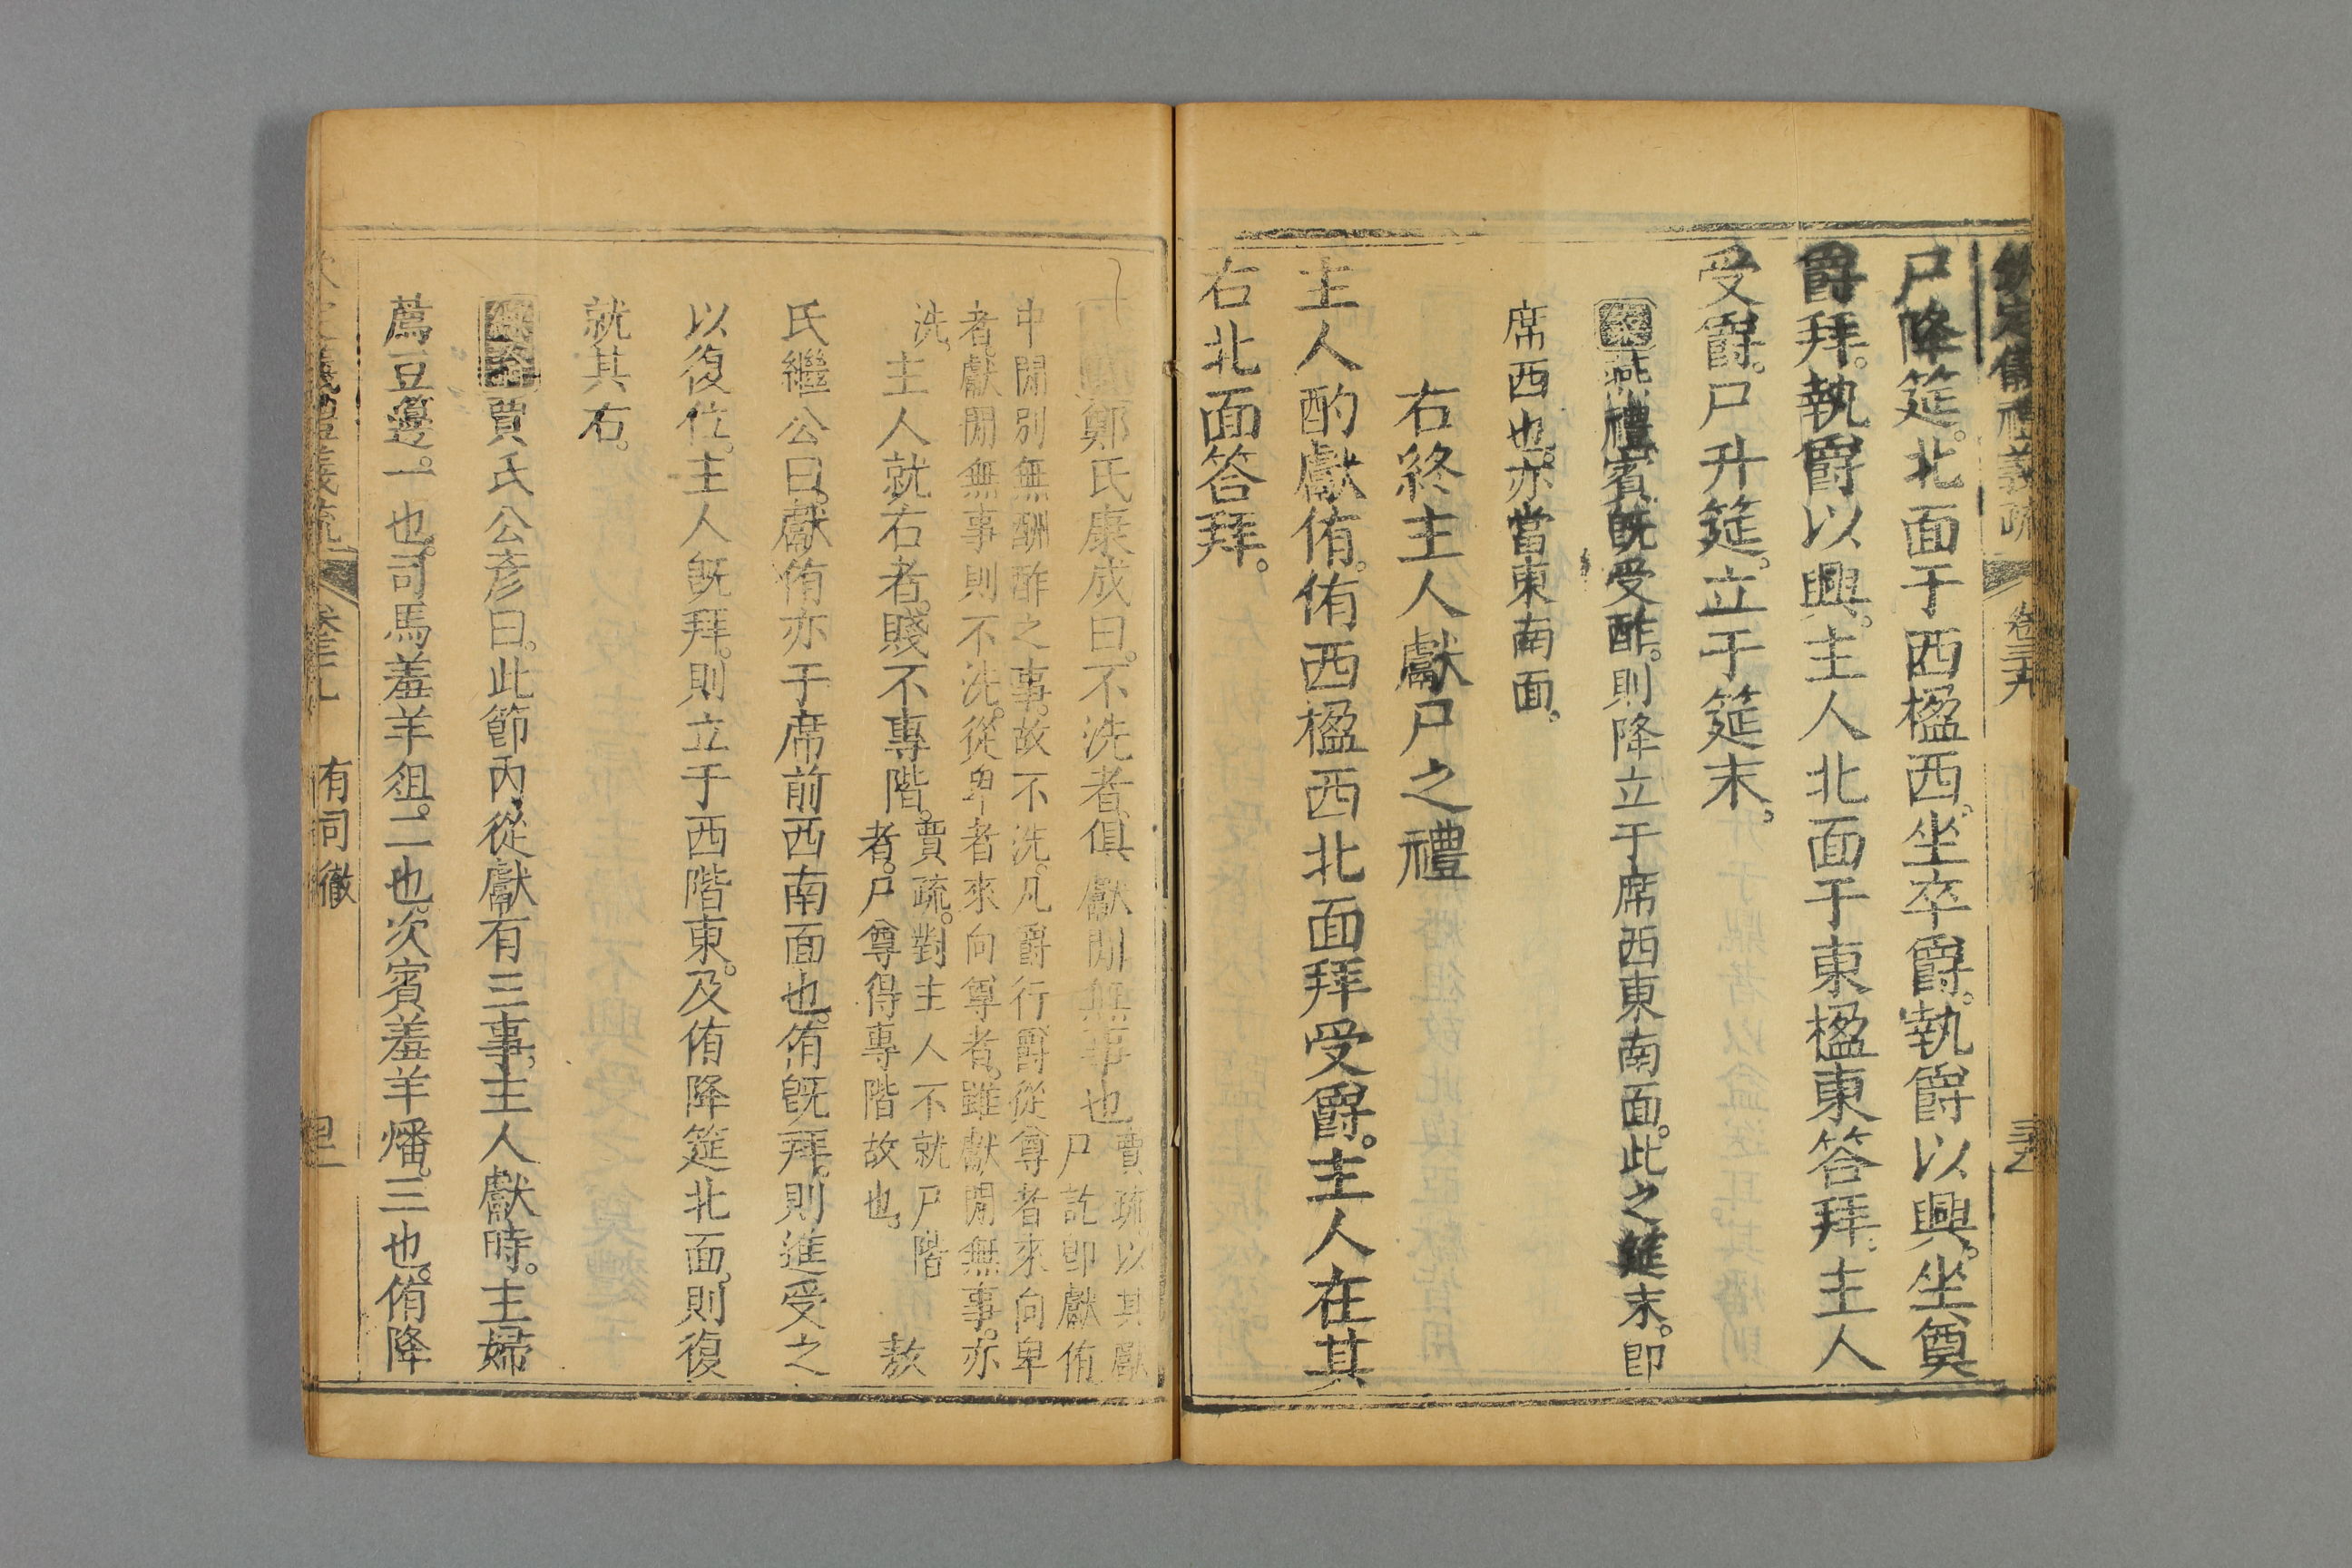 欽定儀禮義疏 卷三十九
尸降筵。北面于西楹西。坐卒爵。執爵以興。坐奠
爵拜。執爵以興。主人北面于東楹東答拜。主人
受爵。尸升筵。立于筵末。
案燕禮賓既受酢。則降立于席西東南面。此之筵末。即
席西也。亦當東南面。
右終主人獻尸之禮
主人酌獻侑。侑西楹西北面拜受爵。主人在其
右北面答拜。
鄭氏康成曰。不洗者。俱獻閒無事也
賈疏以其獻
尸訖卽獻侑
中閒別無酬酢之事。故不洗。凡爵行爵從尊者來向卑
者。獻閒無事則不洗。從卑者來向尊者。雖獻閒無事。亦
洗。
主人就右者。賤不專階。
賈疏。對主人不就尸階
者。尸尊得專階故也。
敖
氏繼公曰。獻侑亦于席前西南面也。侑旣拜。則進受之
以復位。主人旣拜。則立于西階東。及侑降筵北面。則復
就其右。
賈氏公彥曰。此節內從獻有三事。主人獻時。主婦
薦豆籩。一也。司馬羞羊俎。二也。次賓羞羊燔。三也。侑降
義禮義疏 有司徹